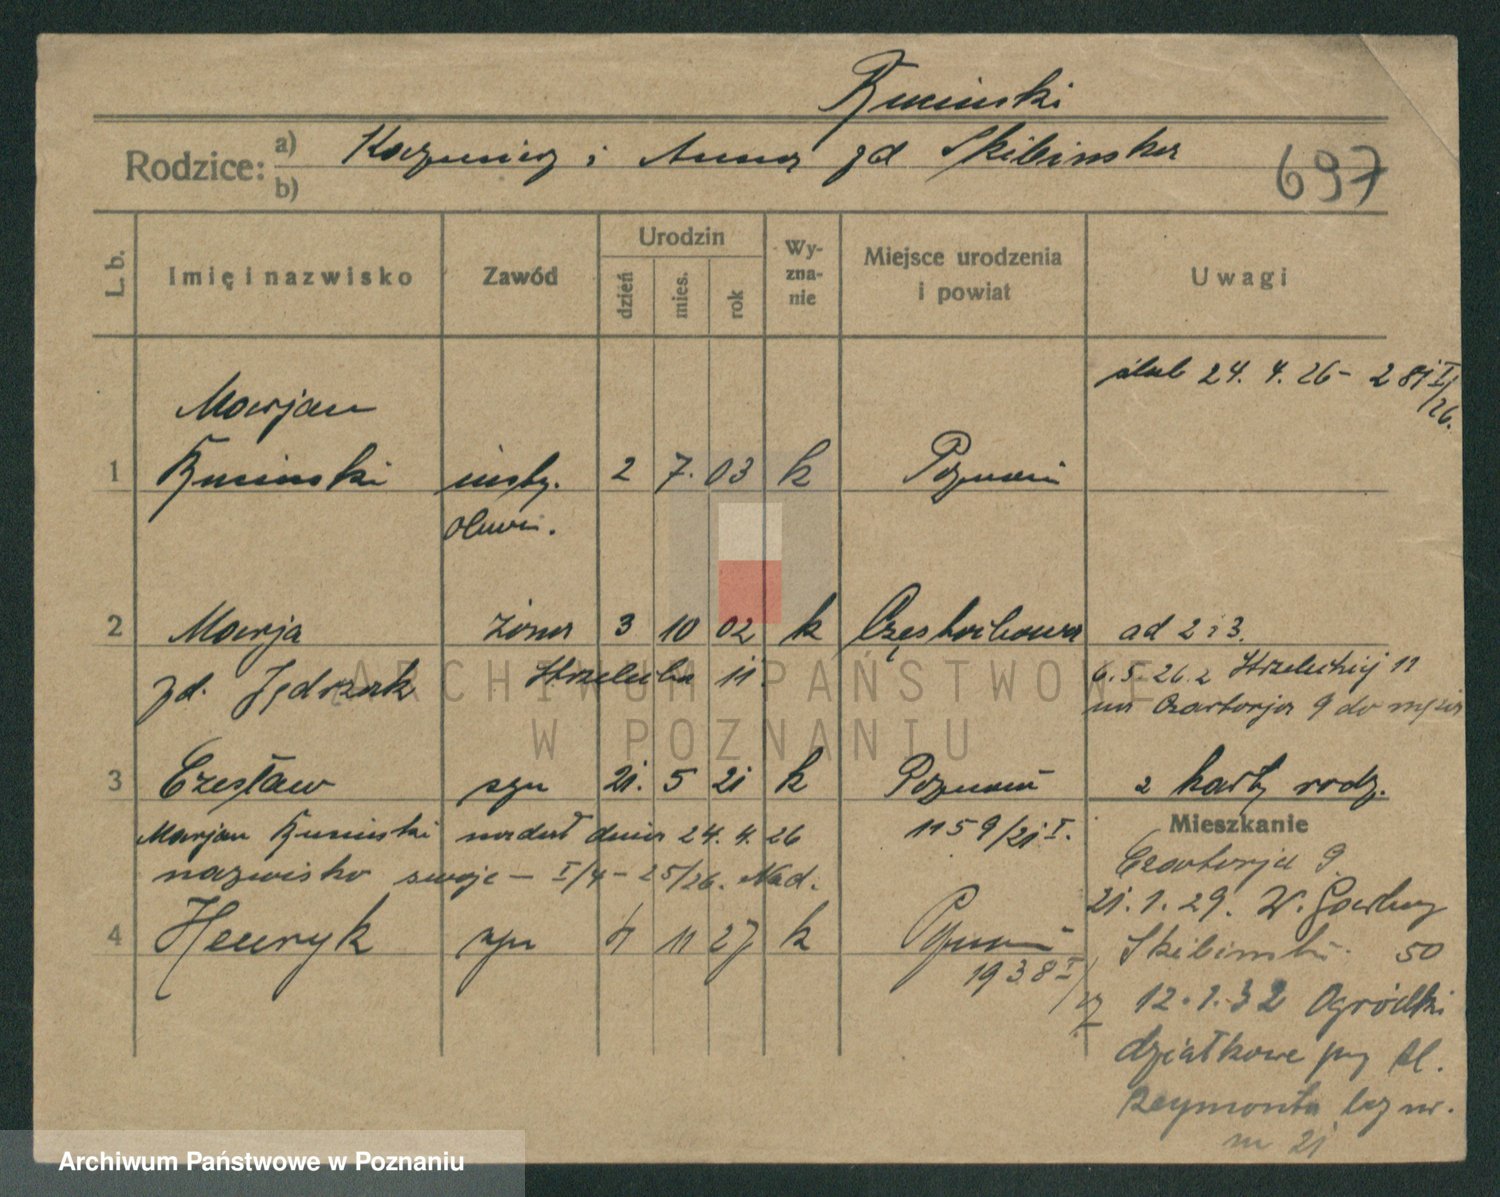 Rodzice:
a)
b)
Kazimierz i Anna zd Skibinska
697
L. b.
Imię i nazwisko
Zawód
Urodzin
dzień
mies.
rok
Wy-
zna-
nie
Miejsce urodzenia
i powiat
Uwagi
ślub 24. 4. 26 -
Marjan
1
2 7. 03 k Poznań
2 Marja żona 3 10 02 k Częstochowa ad 2 i 3.
zd. Jędrzak Strzelecka 11. 6.5.26. z Strzeleckiej 11
na Czartorja 9 do męża
3 Czesław syn 21. 5 21 k Poznań z karty rodz.
Marjan nadał dnia 24. 4. 26 1159/21 I.
nazwisko swoje – I/4 – 25/26. Nad.
Mieszkanie
Czartorja 9.
21. 1. 29. W. Garbary
4 Henryk syn 11 27 k Poznań
1938 I
50
12. 1. 32 Ogródki
działkowe przy
Reymonta bez nr.
nr 21
ARCHIWUM PAŃSTWOWE
W POZNANIU
Archiwum Państwowe w Poznaniu